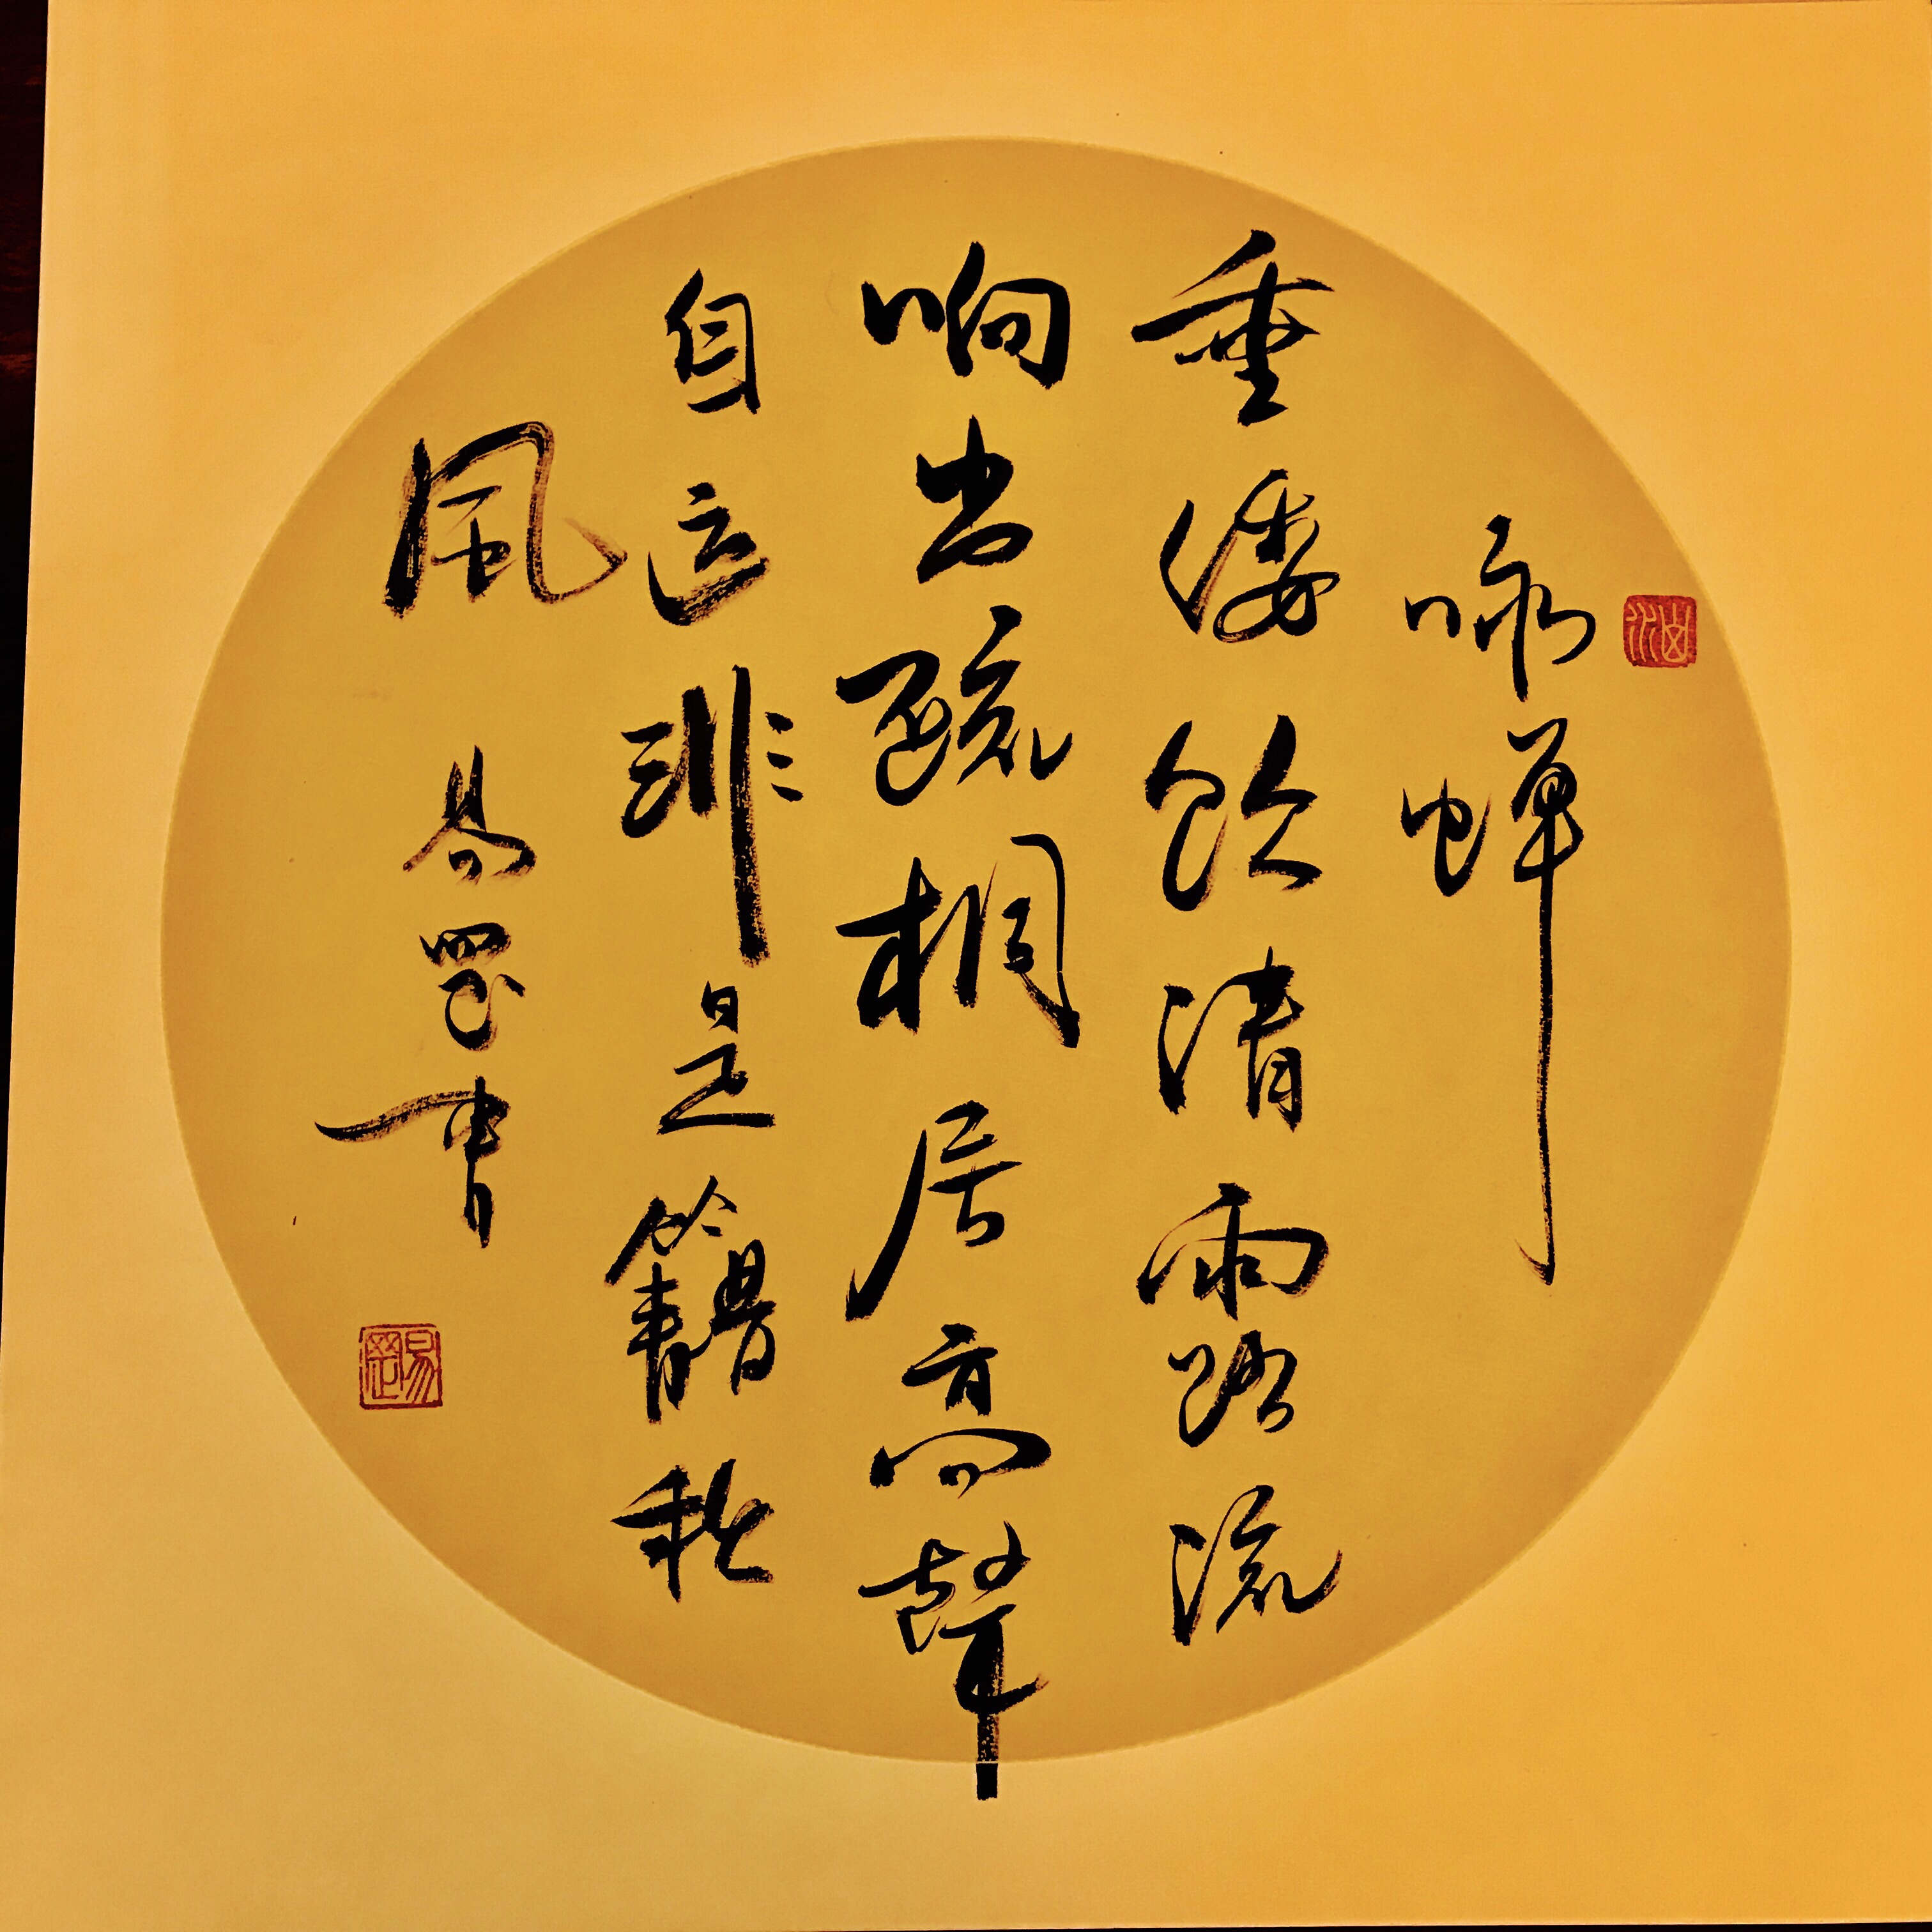 咏蝉
垂緌飲清露流
响出疏桐居高聲
自远非是籍秋
風 易罡書
易罡